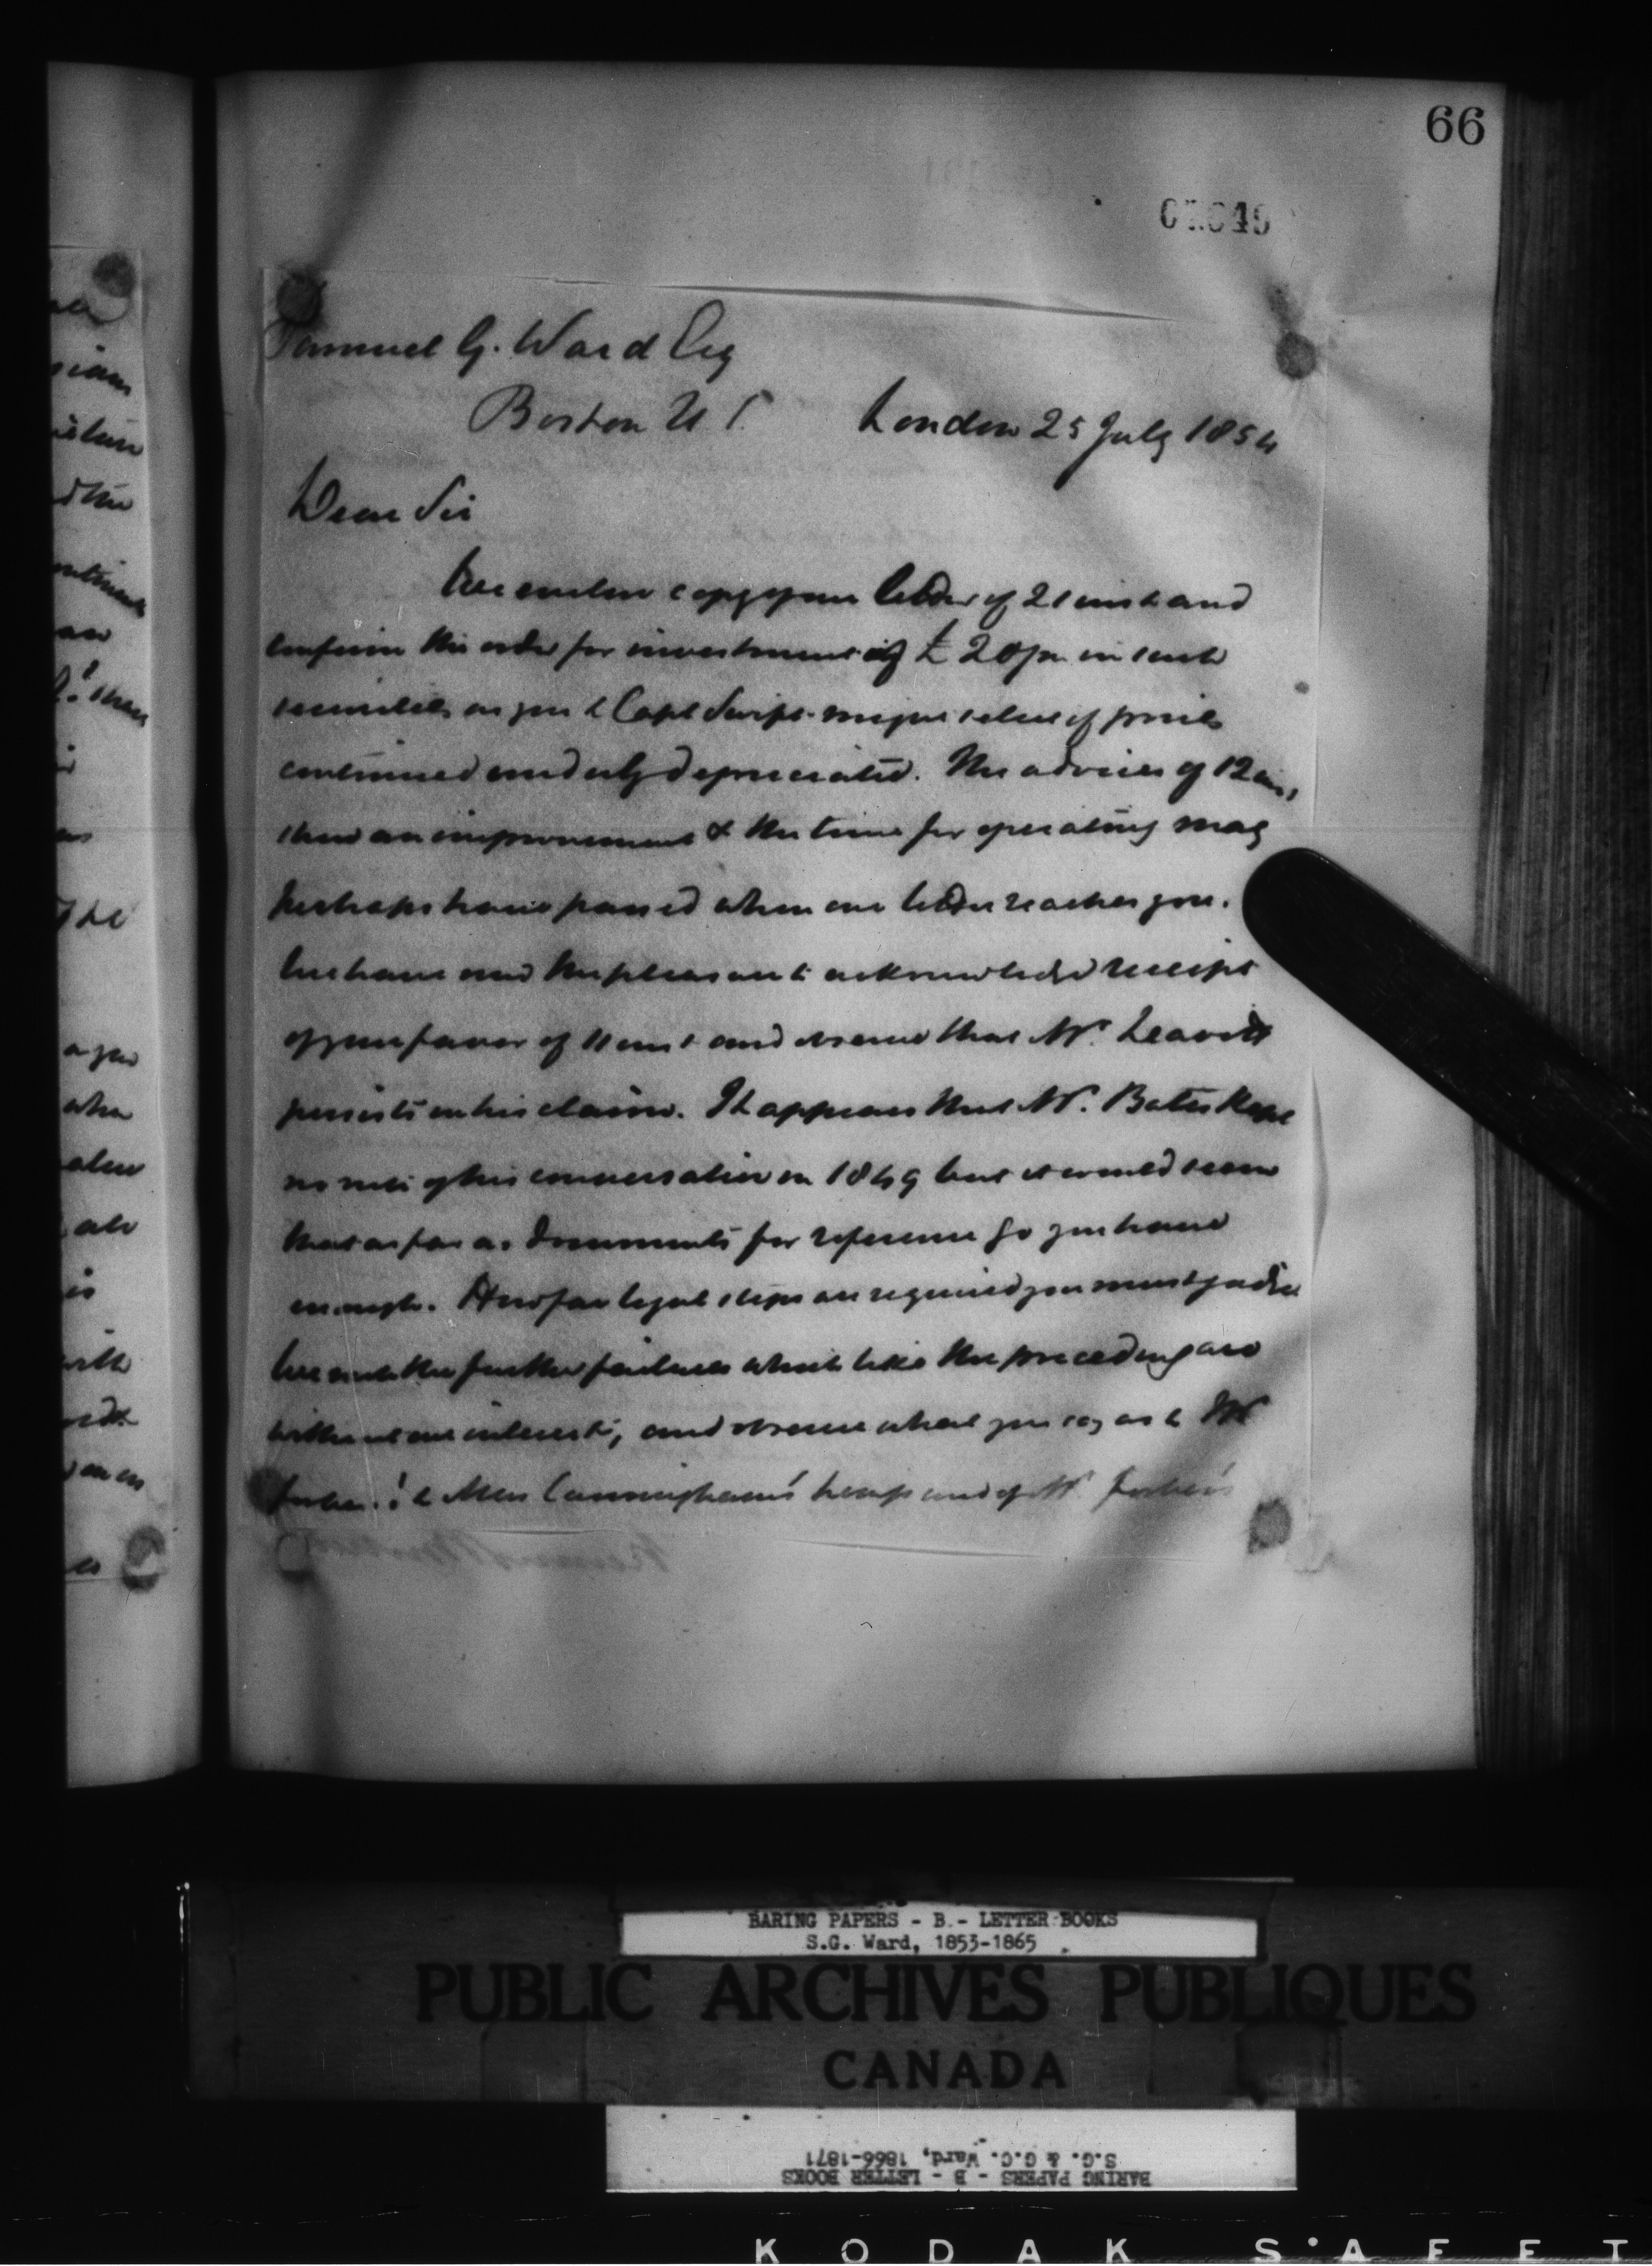 66
Samuel G. Ward Esq
Boston U S. London 25 July 1854
Dear Sir
We enclose copy of our letter of 21 inst and
confirm the order for investment of £ 20/m in such
securities as you & Capt Swift might select if prices
continued unduly depreciated. The advices of 12 inst
show an improvement & the time for operating may
perhaps have passed when our letter reaches you.
We have now the pleasure to acknowledge receipt
of your favor of 11 inst and observe that Mr. Leavitt
persists in his claim. It appears that Mr. Bates kept
no note of his conversation in 1849 but it would seem
that as far as documents for reference go you have
enough. How far legal steps are required you must judge
We note the further failures which like the preceding are
without our interests, and observe what you say as to Mr
Forbes' & Mess Cunningham's and of Mr. Forbes's
BARING PAPERS - B - LETTER BOOKS
S.G. Ward, 1853-1865
PUBLIC ARCHIVES PUBLIQUES
CANADA
BARING PAPERS - B - LETTER BOOKS
S.G. & G.C. Ward, 1866-1871
KODAK SAFET